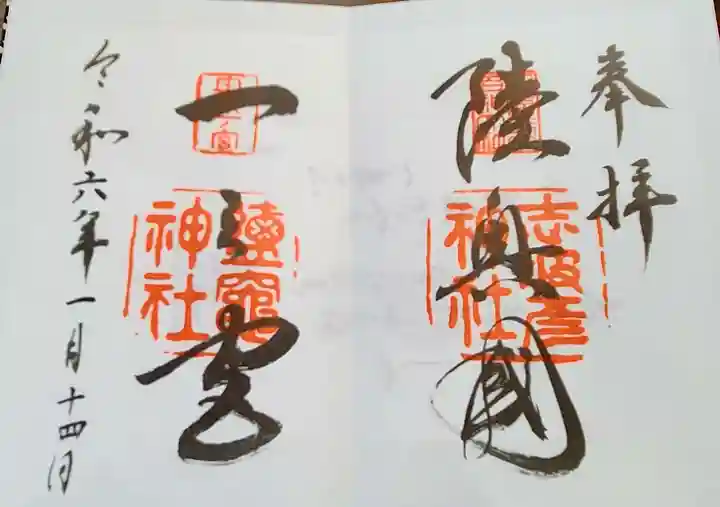 奉拝
陸奥國
志波彦
神社
一之宮
鹽竈
神社
令和六年一月十四日